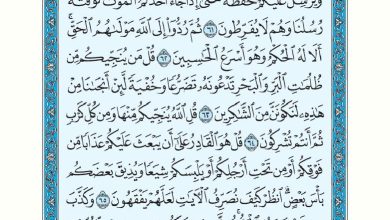 ويرسل عليكم حفظة حتى إذا جاء أحدكم الموت توفته
رُسُلُنَا وَهُمْ لَا يُفَرِّطُونَ ٦١ ثُمَّ رُدُّوٓا۟ إِلَى ٱللَّهِ مَوْلَىٰهُمُ ٱلْحَقِّ
أَلَا لَهُ ٱلْحُكْمُ وَهُوَ أَسْرَعُ ٱلْحَٰسِبِينَ ٦٢ قُلْ مَن يُنَجِّيكُم مِّن
ظُلُمَٰتِ ٱلْبَرِّ وَٱلْبَحْرِ تَدْعُونَهُۥ تَضَرُّعًا وَخُفْيَةً لَّئِنْ أَنجَىٰنَا مِنْ
هَٰذِهِۦ لَنَكُونَنَّ مِنَ ٱلشَّٰكِرِينَ ٦٣ قُلِ ٱللَّهُ يُنَجِّيكُم مِّنْهَا وَمِن كُلِّ كَرْبٍ
ثُمَّ أَنتُمْ تُشْرِكُونَ ٦٤ قُلْ هُوَ ٱلْقَادِرُ عَلَىٰٓ أَن يَبْعَثَ عَلَيْكُمْ عَذَابًا مِّن
فَوْقِكُمْ أَوْ مِن تَحْتِ أَرْجُلِكُمْ أَوْ يَلْبِسَكُمْ شِيَعًا وَيُذِيقَ بَعْضَكُم
بَأْسَ بَعْضٍ ٱنظُرْ كَيْفَ نُصَرِّفُ ٱلْءَايَٰتِ لَعَلَّهُمْ يَفْقَهُونَ ٦٥ وَكَذَّبَ